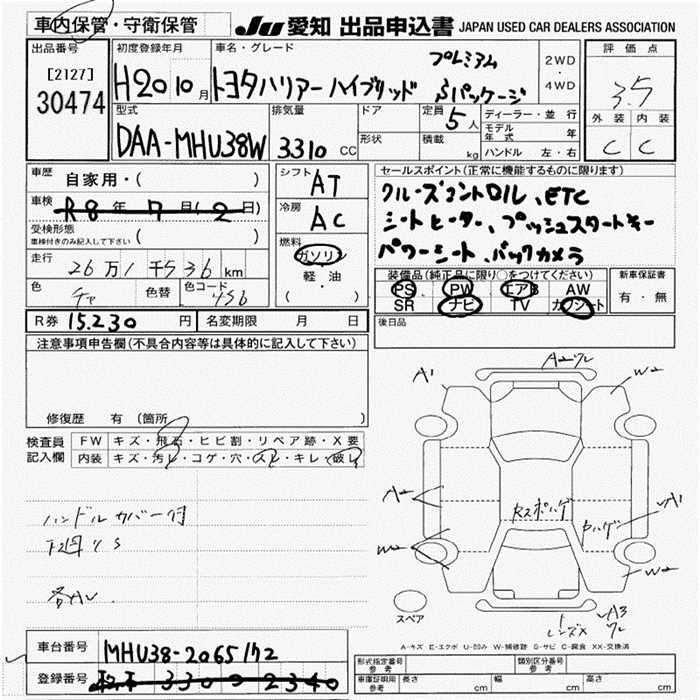 車内保管・守衛保管 JU 愛知 出品申込書 JAPAN USED CAR DEALERS ASSOCIATION
出品番号 初度登録年月 車名・グレード 評価点
[2127] 30474 H20 10月 トヨタハリアーハイブリッド プレミアム Sパッケージ 2WD・4WD 3.5
型式 排気量 ドア 定員 ディーラー・並行 外装 内装
DAA-MHU38W 3310 CC 形状 5人 積載 kg モデル年式 年 ハンドル 左・右 C C
車歴 自家用・( ) シフト AT セールスポイント(正常に機能するものに限ります)
車検 R8年7月(2)日 冷房 AC クルーズコントロル、ETC
受検形態 ( ) シートヒーター、プッシュスタートキー
車検付きのみ記入して下さい 燃料 ガソリン パワーシート、バックカメラ
走行 26万1千536km 軽・油 装備品(純正品に限り○をつけてください) 新車保証書
色 チャ 色替 色コード 4S6 ( ・ ) PS PW エアB AW 有・無
SR ナビ TV カワシート
R券 15.230円 名変期限 月 日 後日品
注意事項申告欄(不具合内容等は具体的に記入して下さい)
修復歴 有(箇所 )
検査員 FW キズ・飛石・ヒビ割・リペア跡・X要
記入欄 内装 キズ・汚れ・コゲ・穴・スレ・キレ・破れ
ハンドルカバー付
下廻りS
A1 W2
A2
W2
A1
W2
A3
スペア
A-キズ E-エクボ U-凹み W-補修跡 S-サビ C-腐食 XX-交換済
車台番号 MHU38-2065172
登録番号 330 2340
形式指定番号 参考 類別区分番号 参考
車庫証明用 参考 長さ cm 幅 cm 高さ cm